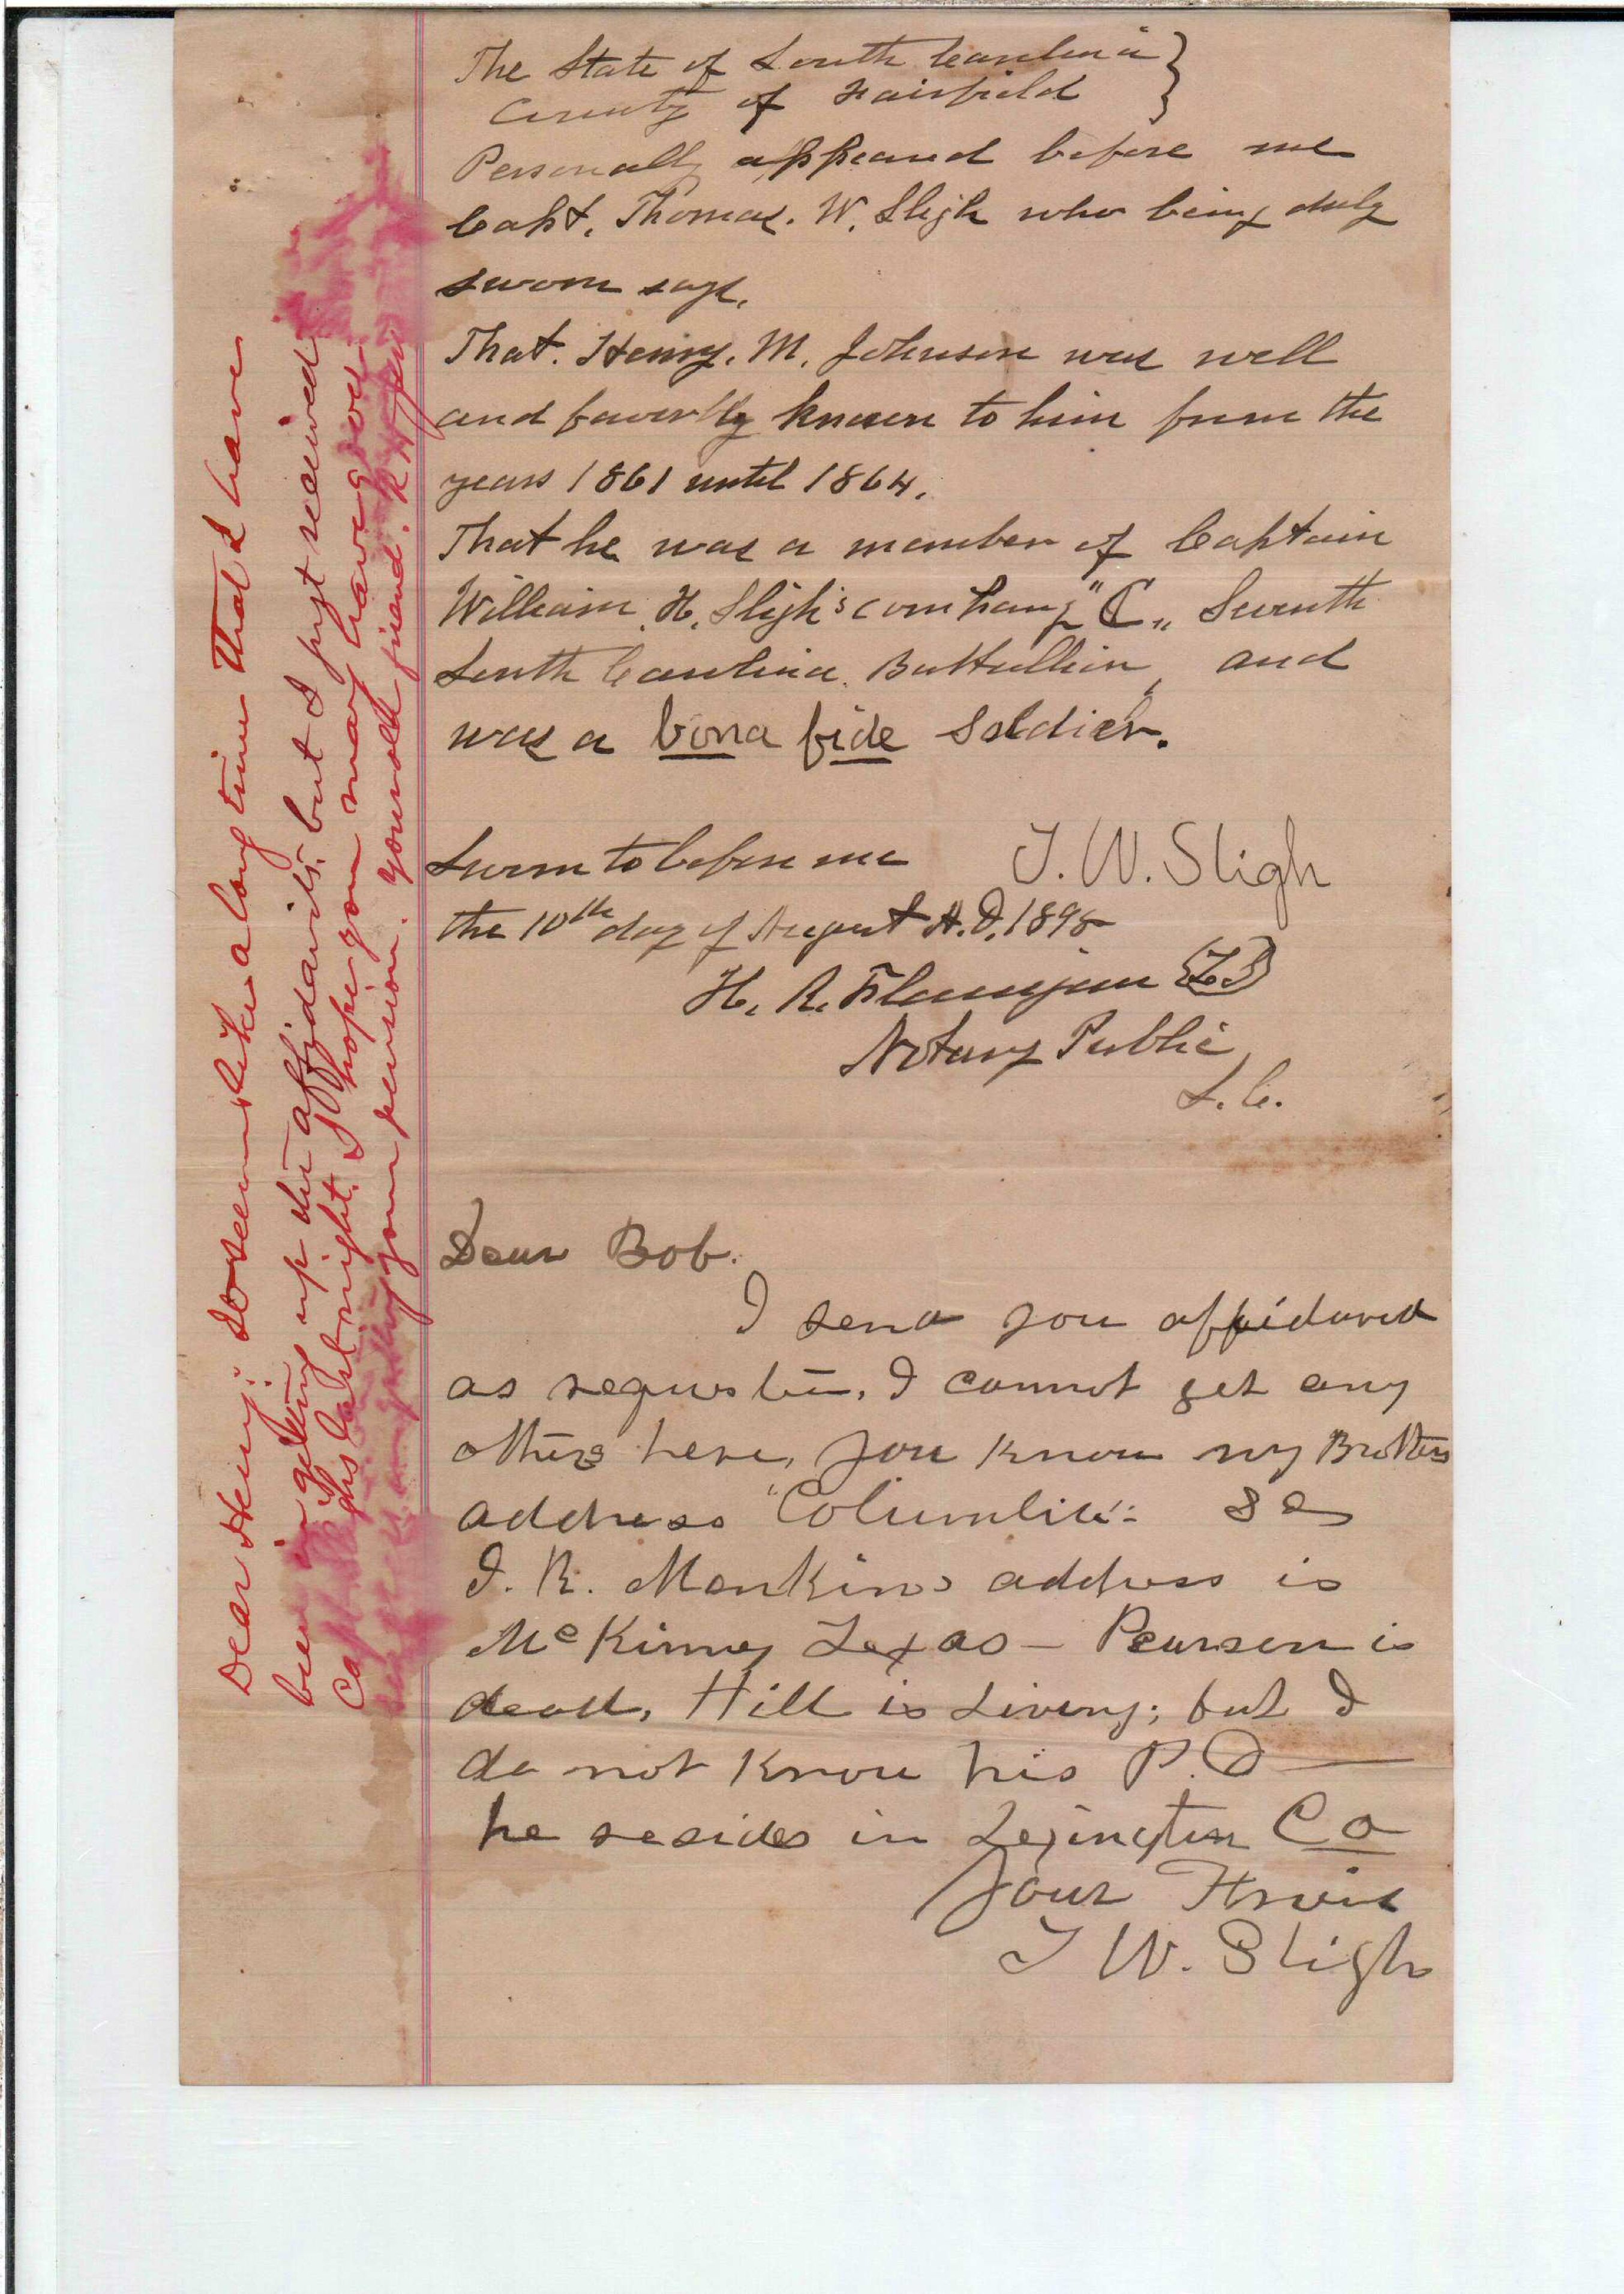 The State of South Carolina }
County of Fairfield }
Personally appeared before me
Capt. Thomas. W. Sligh who being duly
sworn says.
That. Henry. M. Johnson was well
and favorbly known to him from the
years 1861 until 1864.
That he was a member of Captain
William. H. Sligh's company "C" Seventh
South Carolina. Battallion, and
was a bona fide Soldier.
Sworn to before me T. W. Sligh
the 10th day of August A.D. 1898
H. R. Flannigan
Notary Public
S. C.
Dear Bob.
I send you affidavid
as requsten, I cannot get any
others here, you know my Brothers
address "Columbia" SC
J. R. Mankins address is
McKinney Texas - Pearson is
dead, Hill is Living; but I
do not know his P.O
he resides in Lexington Co
Your Friend
T W. Sligh
Dear Henry: It seems like a long time that I have
been in getting up the affidavits, but I just received
Capt last night. I hope you may have good
your pension. your old friend. R